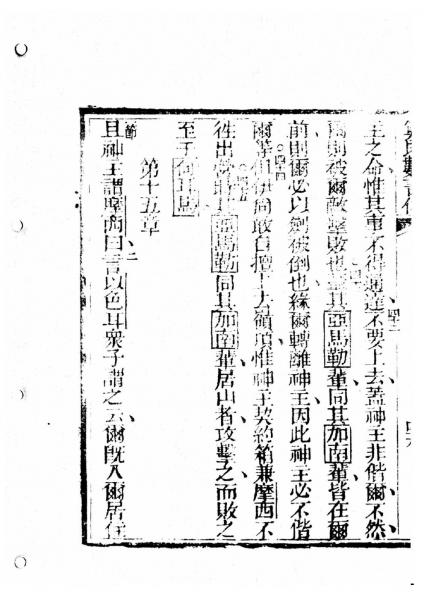 主之命惟其事不得通達不要上去蓋神主非偕爾不然
爾則被爾敵擊敗也蓋其亞馬勒輩同其加南輩皆在爾
前則爾必以劍被倒也緣爾轉離神主因此神主必不偕
爾等伊尚敢自擅上去嶺頂惟神主契約箱兼摩西不
徃出其亞馬勒同其加南輩居山者攻擊之而敗之
至于何耳馬
第十五章
節且神主謂摩西曰二言以色耳眾子謂之云爾既入爾居住